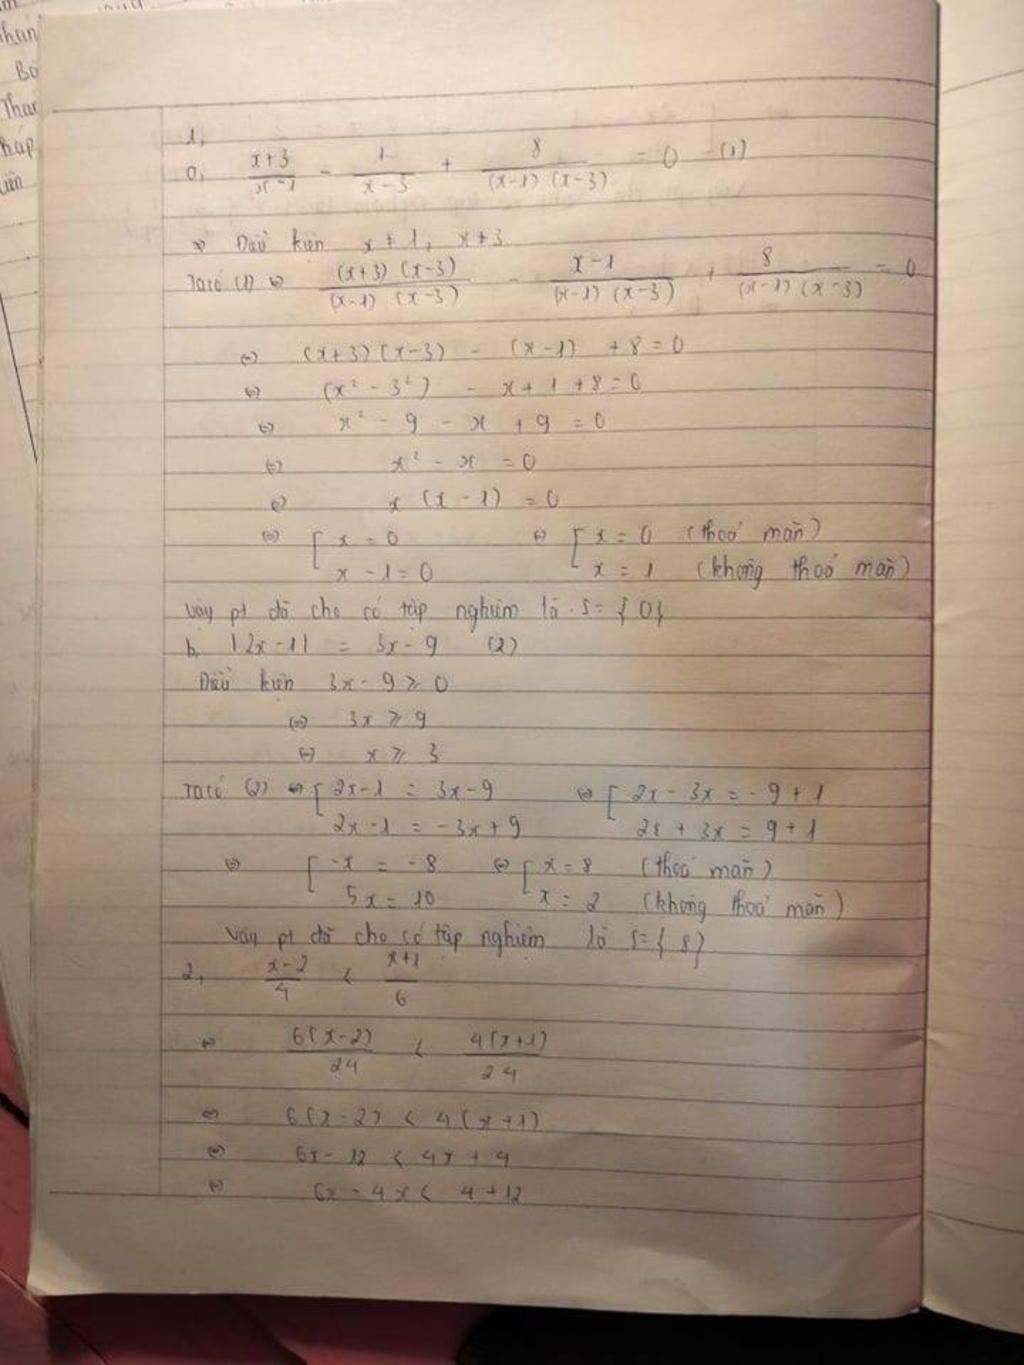 han
Bở
Thai
háp
iên
1,
a, x+3/x-1 - 1/x-3 + 8/(x-1)(x-3) = 0 (1)
Điều kiện x ≠ 1, x ≠ 3
Ta có (1) ⇔ (x+3)(x-3)/(x-1)(x-3) - x-1/(x-1)(x-3) + 8/(x-1)(x-3) = 0
⇔ (x+3)(x-3) - (x-1) + 8 = 0
⇔ (x² - 3²) - x + 1 + 8 = 0
⇔ x² - 9 - x + 9 = 0
⇔ x² - x = 0
⇔ x (x - 1) = 0
⇔ [ x = 0 ⇔ [ x = 0 (thoả mãn)
x - 1 = 0 x = 1 (không thoả mãn)
Vậy pt đã cho có tập nghiệm là S = {0}
b, |2x - 1| = 3x - 9 (2)
Điều kiện 3x - 9 ≥ 0
⇔ 3x ≥ 9
⇔ x ≥ 3
Ta có (2) ⇔ [ 2x - 1 = 3x - 9 ⇔ [ 2x - 3x = -9 + 1
2x - 1 = -3x + 9 2x + 3x = 9 + 1
⇔ [ -x = -8 ⇔ [ x = 8 (thoả mãn)
5x = 10 x = 2 (không thoả mãn)
Vậy pt đã cho có tập nghiệm là S = {8}
2, x-2/4 < x+1/6
⇔ 6(x-2)/24 < 4(x+1)/24
⇔ 6(x-2) < 4(x+1)
⇔ 6x - 12 < 4x + 4
⇔ 6x - 4x < 4 + 12